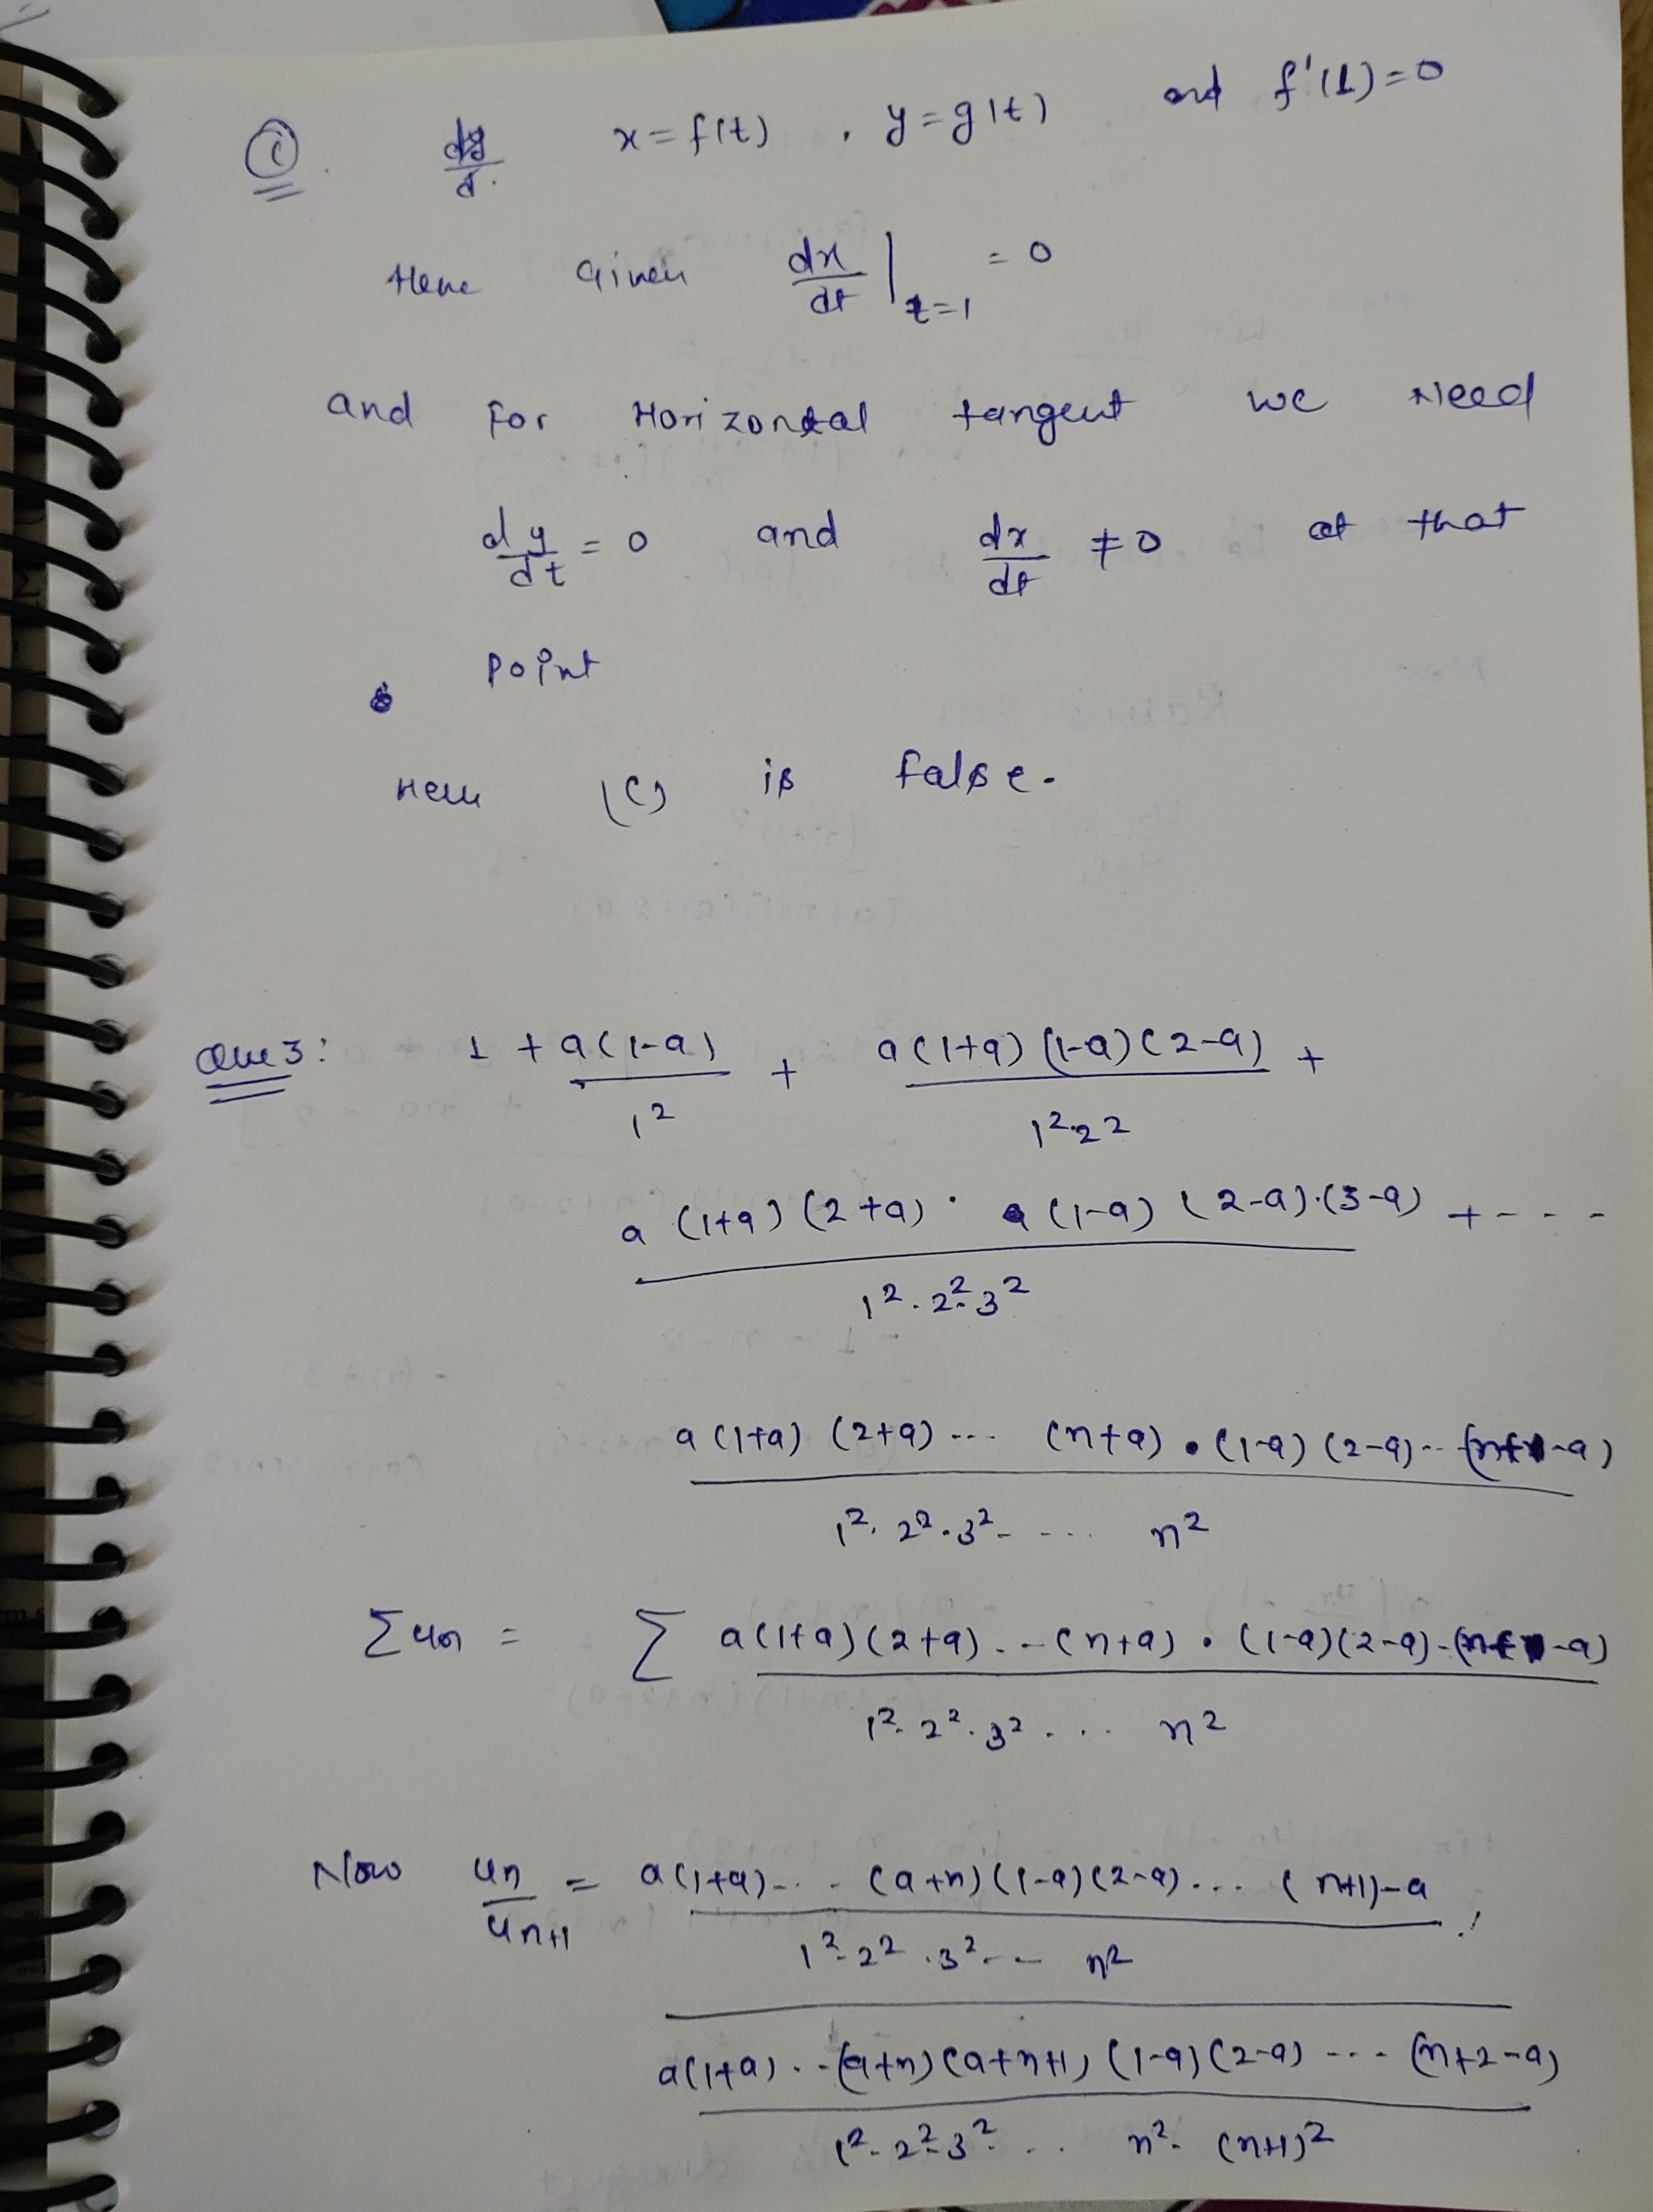 (c). dy/d. x = f(t) , y = g(t) and f'(1) = 0
Here Given dx/dt |t=1 = 0
and For Horizontal tangent we Need
dy/dt = 0 and dx/dt ≠ 0 at that
Point
Here (c) is false.
Que 3: 1 + a(1-a)/1² + a(1+a)(1-a)(2-a)/1²·2² +
a(1+a)(2+a) · (1-a)(2-a)·(3-a)/1²·2²·3² + - - -
a(1+a)(2+a)... (n+a) · (1-a)(2-a)-- (n+1-a)/1²·2²·3²- ... n²
Σun = Σ a(1+a)(2+a)..-(n+a) · (1-a)(2-a)-(n+1-a)/1²·2²·3²... n²
Now un/un+1 = a(1+a)-.. (a+n)(1-a)(2-a)... (n+1)-a/1²·2²·3².-- n²
a(1+a)..-(a+n)(a+n+1)(1-a)(2-a) --- (n+2-a)/1²·2²·3²... n²·(n+1)²